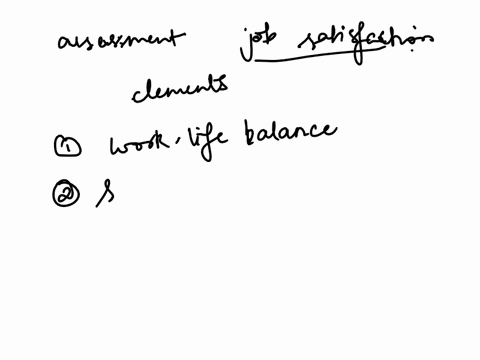 assessment job satisfaction
elements
① work-life balance
② s